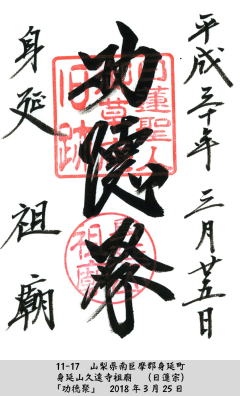 平成三十年 三月廿五日
日蓮聖人
旧跡
功徳聚
身延 祖廟
11-17 山梨県南巨摩郡身延町
身延山久遠寺祖廟 （日蓮宗）
「功徳聚」 2018年3月25日